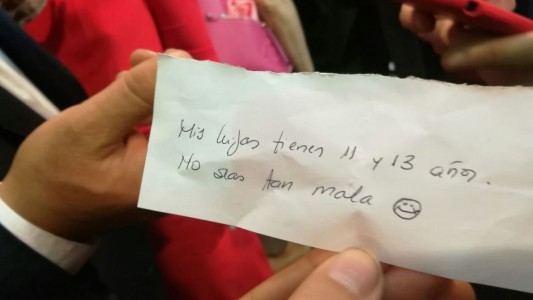 Mis hijas tienen 11 y 13 años.
No seas tan mala ☺